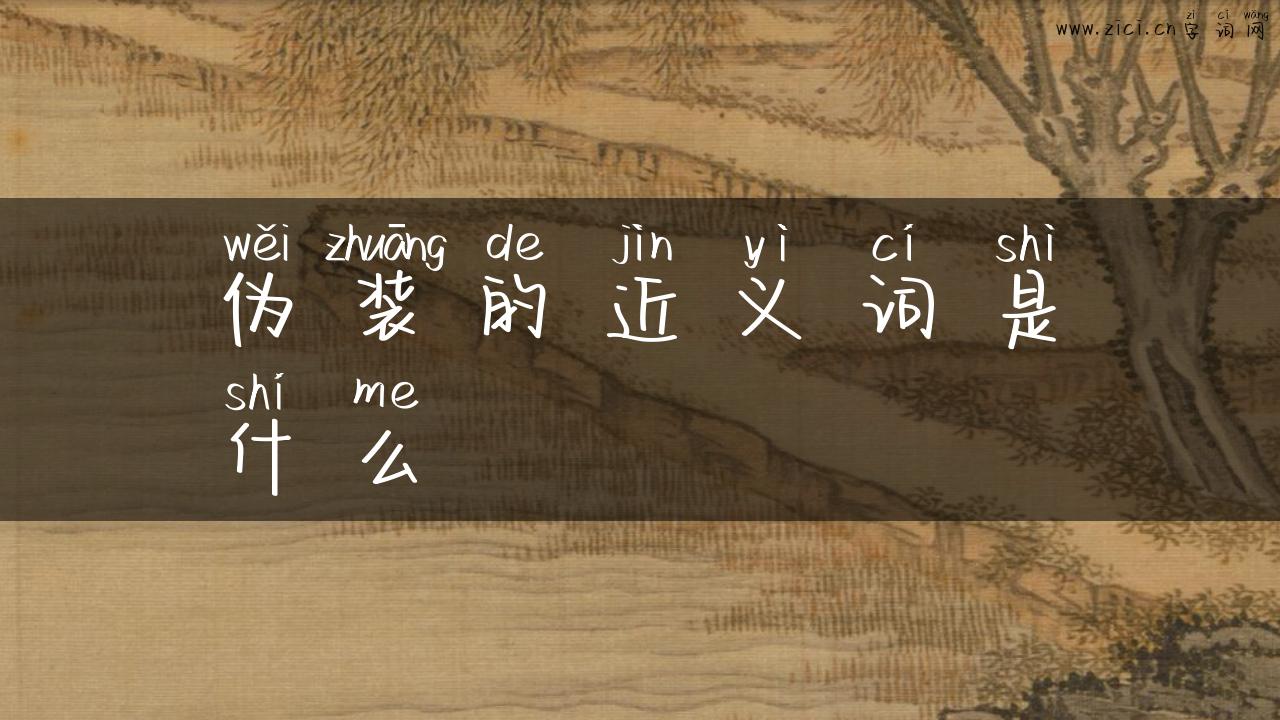 zì cí wǎng
www.zici.cn字词网
wěi zhuāng de jìn yì cí shì
伪装的近义词是
shí me
什么